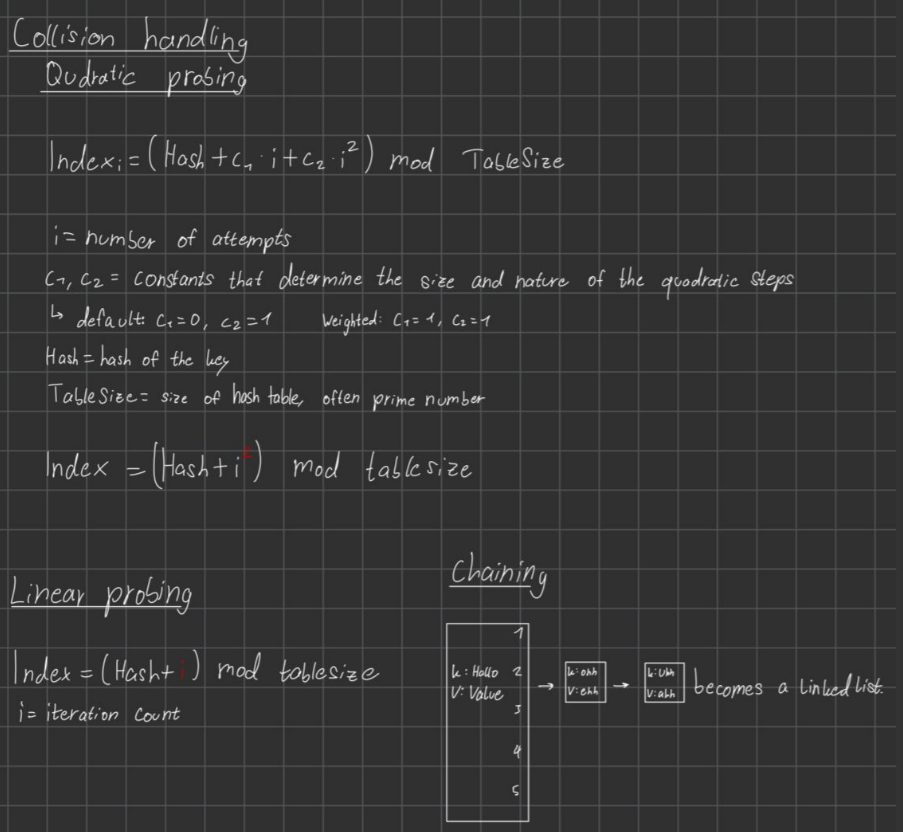 Collision handling
Qudratic probing
Indexᵢ = (Hash + c₁ · i + c₂ · i²) mod TableSize
i = number of attempts
c₁, c₂ = constants that determine the size and nature of the quadratic steps
↳ default: c₁ = 0, c₂ = 1 Weighted: c₁ = 1, c₂ = 1
Hash = hash of the key
TableSize = size of hash table, often prime number
Index = (Hash + i²) mod tablesize
Linear probing
Index = (Hash + i) mod tablesize
i = iteration count
Chaining
1
k: Hallo 2
V: Value
→
k: ohh
V: ehh
→
k: Uhh
V: ahh
becomes a linked list.
3
4
5